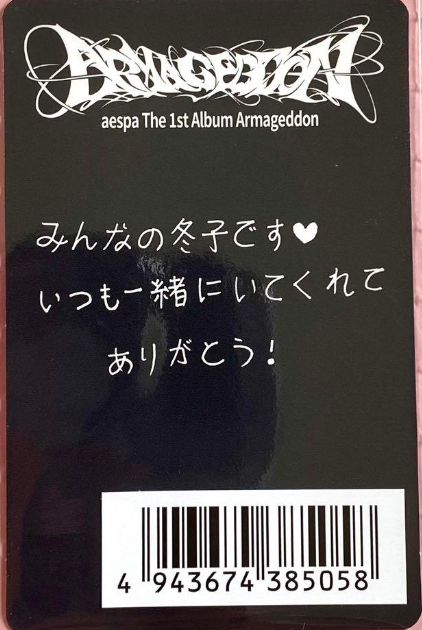 ARMAGEDDON
aespa The 1st Album Armageddon
みんなの冬子です♥
いつも一緒にいてくれて
ありがとう!
4 943674 385058